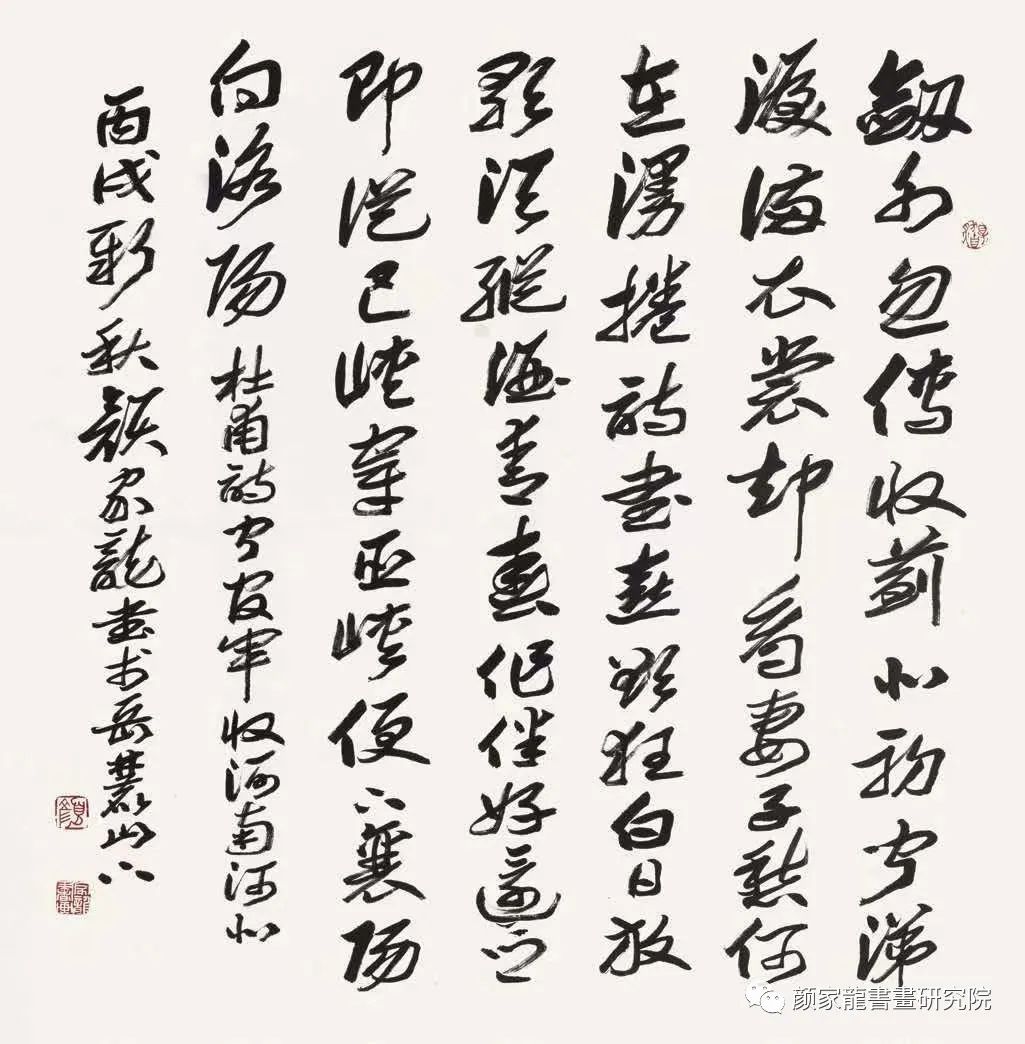 劒外忽傳收薊北初聞涕
淚滿衣裳却看妻子愁何
在漫捲詩書喜欲狂白日放
歌須縱酒青春作伴好還鄉
即從巴峽穿巫峽便下襄陽
向洛陽 杜甫詩聞官軍收河南河北
丙戌新秋顏家龍書於岳麓山下
顏
颜家龍書畫研究院